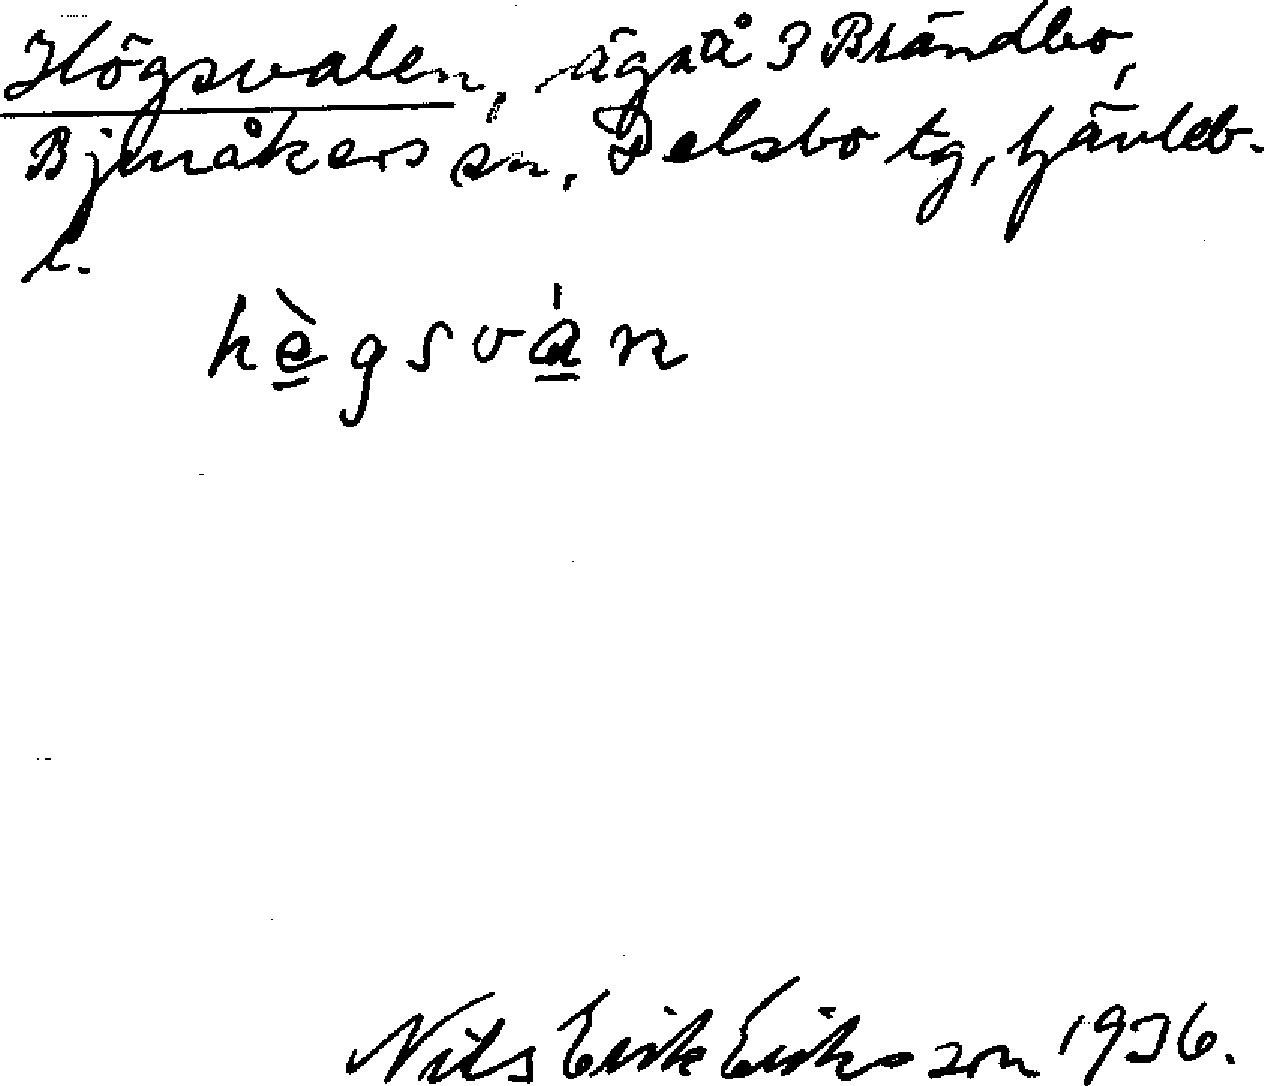 Högsvalen, äga å 3 Brändbo,
Bjuråkers sn, Delsbo tg, Gävleb.
l.
hègsván
Nils Erik Eriksson 1936.